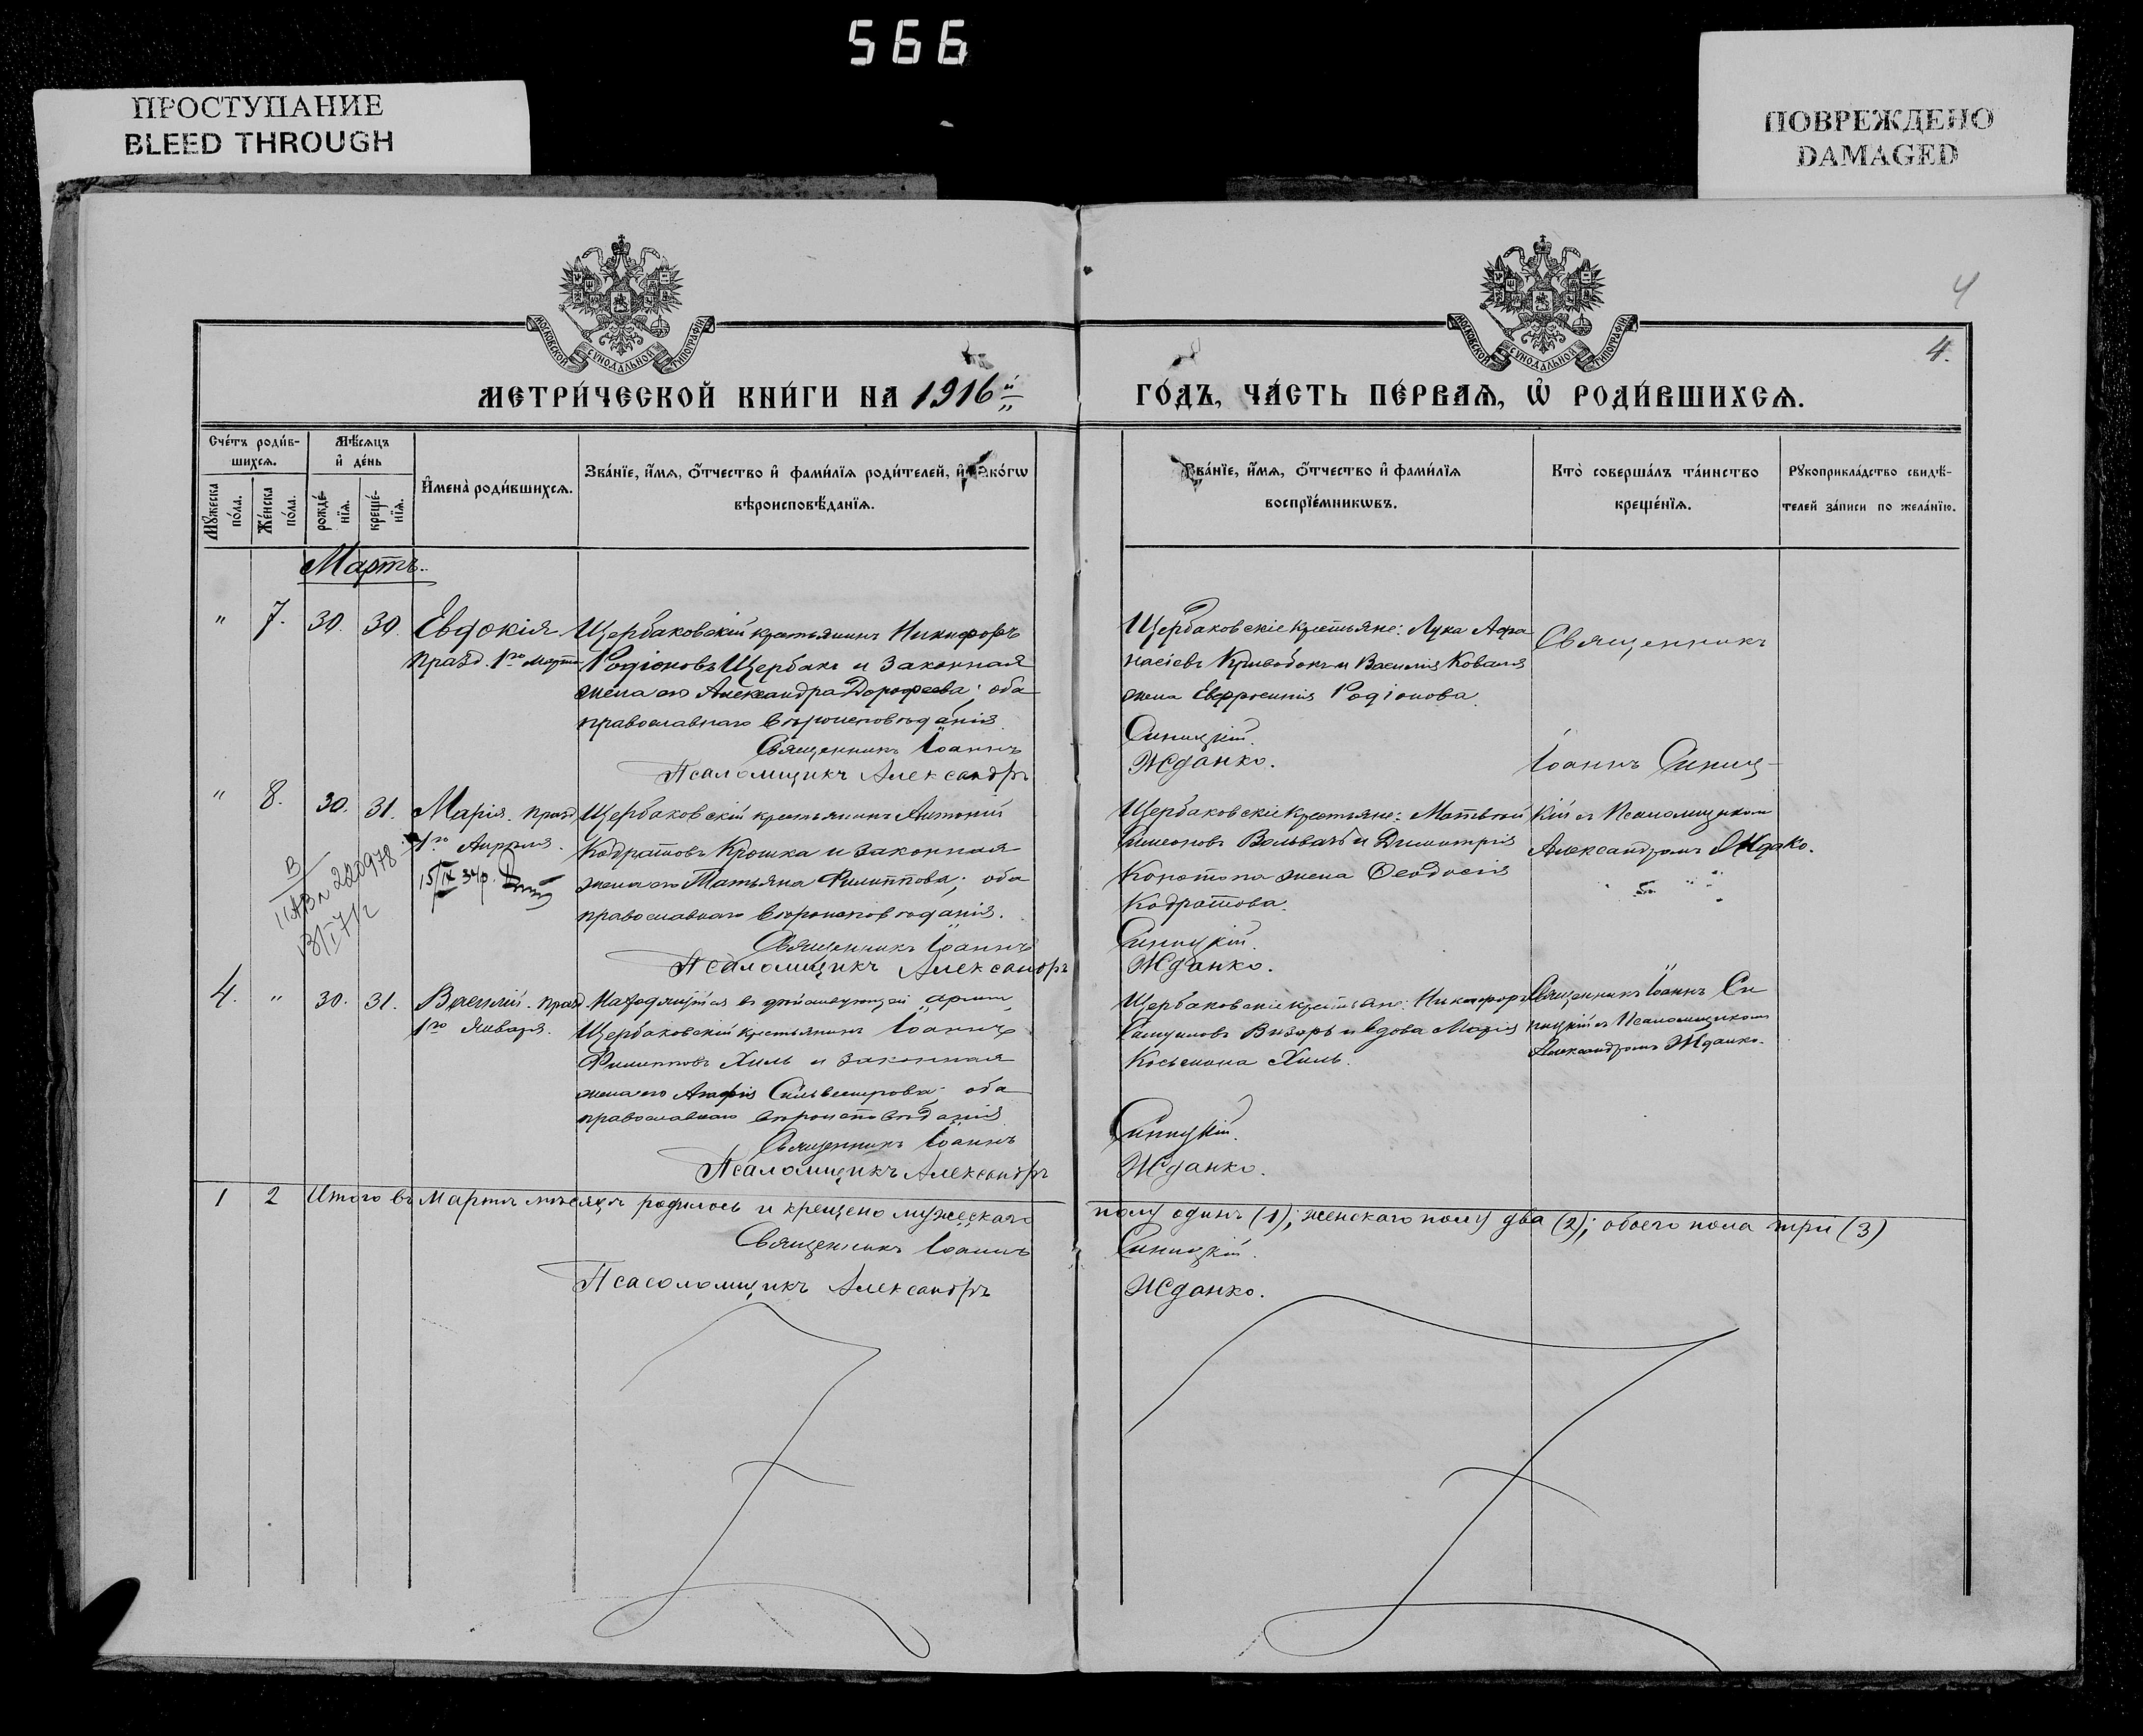 566
ПРОСТУПАНИЕ
BLEED THROUGH
ПОВРЕЖДЕНО
DAMAGED
4
4.
МОСКОВСКОЙ СУНОДАЛЬНОЙ ТИПОГРАФІИ
МОСКОВСКОЙ СУНОДАЛЬНОЙ ТИПОГРАФІИ
МЕТРИ́ЧЕСКОЙ КНИ́ГИ НА 1916й
ГО́ДЪ, ЧА́СТЬ ПЕ́РВАѦ, Ѡ҆ РОДИ́ВШИХСѦ.
Сче́тъ роди́в-
шихсѧ.
Мѣ́сѧцъ
и҆ де́нь
Мꙋ́жеска
по́ла.
Же́нска
по́ла.
рожде́-
нїѧ.
креще́-
нїѧ.
И҆мена̀ роди́вшихсѧ.
Зва́нїе, и҆́мѧ, ѻ҆́тчество и҆ фами́лїѧ роди́телей, и҆ како́гѡ
вѣроисповѣ́данїѧ.
Зва́нїе, и҆́мѧ, ѻ҆́тчество и҆ фами́лїѧ
воспрїе́мникѡвъ.
Кто̀ соверша́лъ та́инство
креще́нїѧ.
Рꙋкоприкла́дство свидѣ́-
телей за́писи по жела́нїю.
Мартъ.
" 7. 30. 30. Евдокія
празд. 1го Марта
Щербаковскій крестьянинъ Никифоръ
Родіоновъ Щербакъ и законная
жена его Александра Дорофеева; оба
православнаго вѣроисповѣданія
Священникъ Іоаннъ
Псаломщикъ Александръ
Щербаковскіе крестьяне: Лука Афа
насіевъ Кривобокъ и Василія Коваля
жена Евфросинія Родіонова.
Синицкій.
Жданко.
Священникъ
Іоаннъ Синиц-
" 8. 30. 31. Марія. празд
1го Апрѣля.
15/IX 34р.
В
ІІАВ № 220978
13/I 71г
Щербаковскій крестьянинъ Антоній
Кодратовъ Крошка и законная
жена его Татьяна Филиппова; оба
православнаго вѣроисповѣданія.
Священникъ Іоаннъ
Псаломщикъ Александръ
Щербаковскіе крестьяне: Матвѣй
Симеоновъ и Димитрія
Конотопа жена Ѳеодосія
Кодратова.
Синицкій.
Жданко.
кій съ Псаломщикомъ
Александромъ Жданко.
4. " 30. 31. Василій. празд
1го Января.
Находящійся въ дѣйствующей арміи
Щербаковскій крестьянинъ Іоаннъ
Филипповъ Хиль и законная
жена его Агафія Сильвестрова; оба
православнаго вѣроисповѣданія
Священникъ Іоаннъ
Псаломщикъ Александръ
Щербаковскіе крестьяне: Никифоръ
Визиръ и вдова Марія
Косьмина Хиль.
Синицкій.
Жданко.
Священникъ Іоаннъ Си
ницкій съ Псаломщикомъ
Александромъ Жданко.
1 2 Итого въ Мартѣ мѣсяцѣ родилось и крещено мужескаго
полу одинъ (1); женскаго полу два (2); обоего пола три (3)
Священникъ Іоаннъ
Синицкій.
Псаломщикъ Александръ
Жданко.